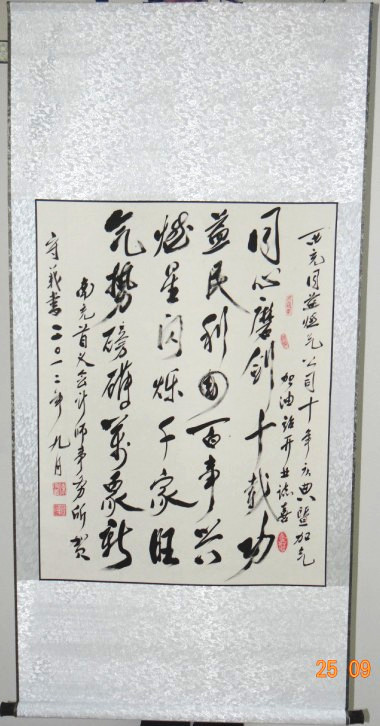 西充同益燃气公司十年庆典暨加气
加油站开业志喜
同心磨剑十载功
益民利国百事兴
燃星闪烁千家旺
气势磅礴萬象新
南充首义会计师事务所 贺
守義書 二〇一二年 九月
25 09